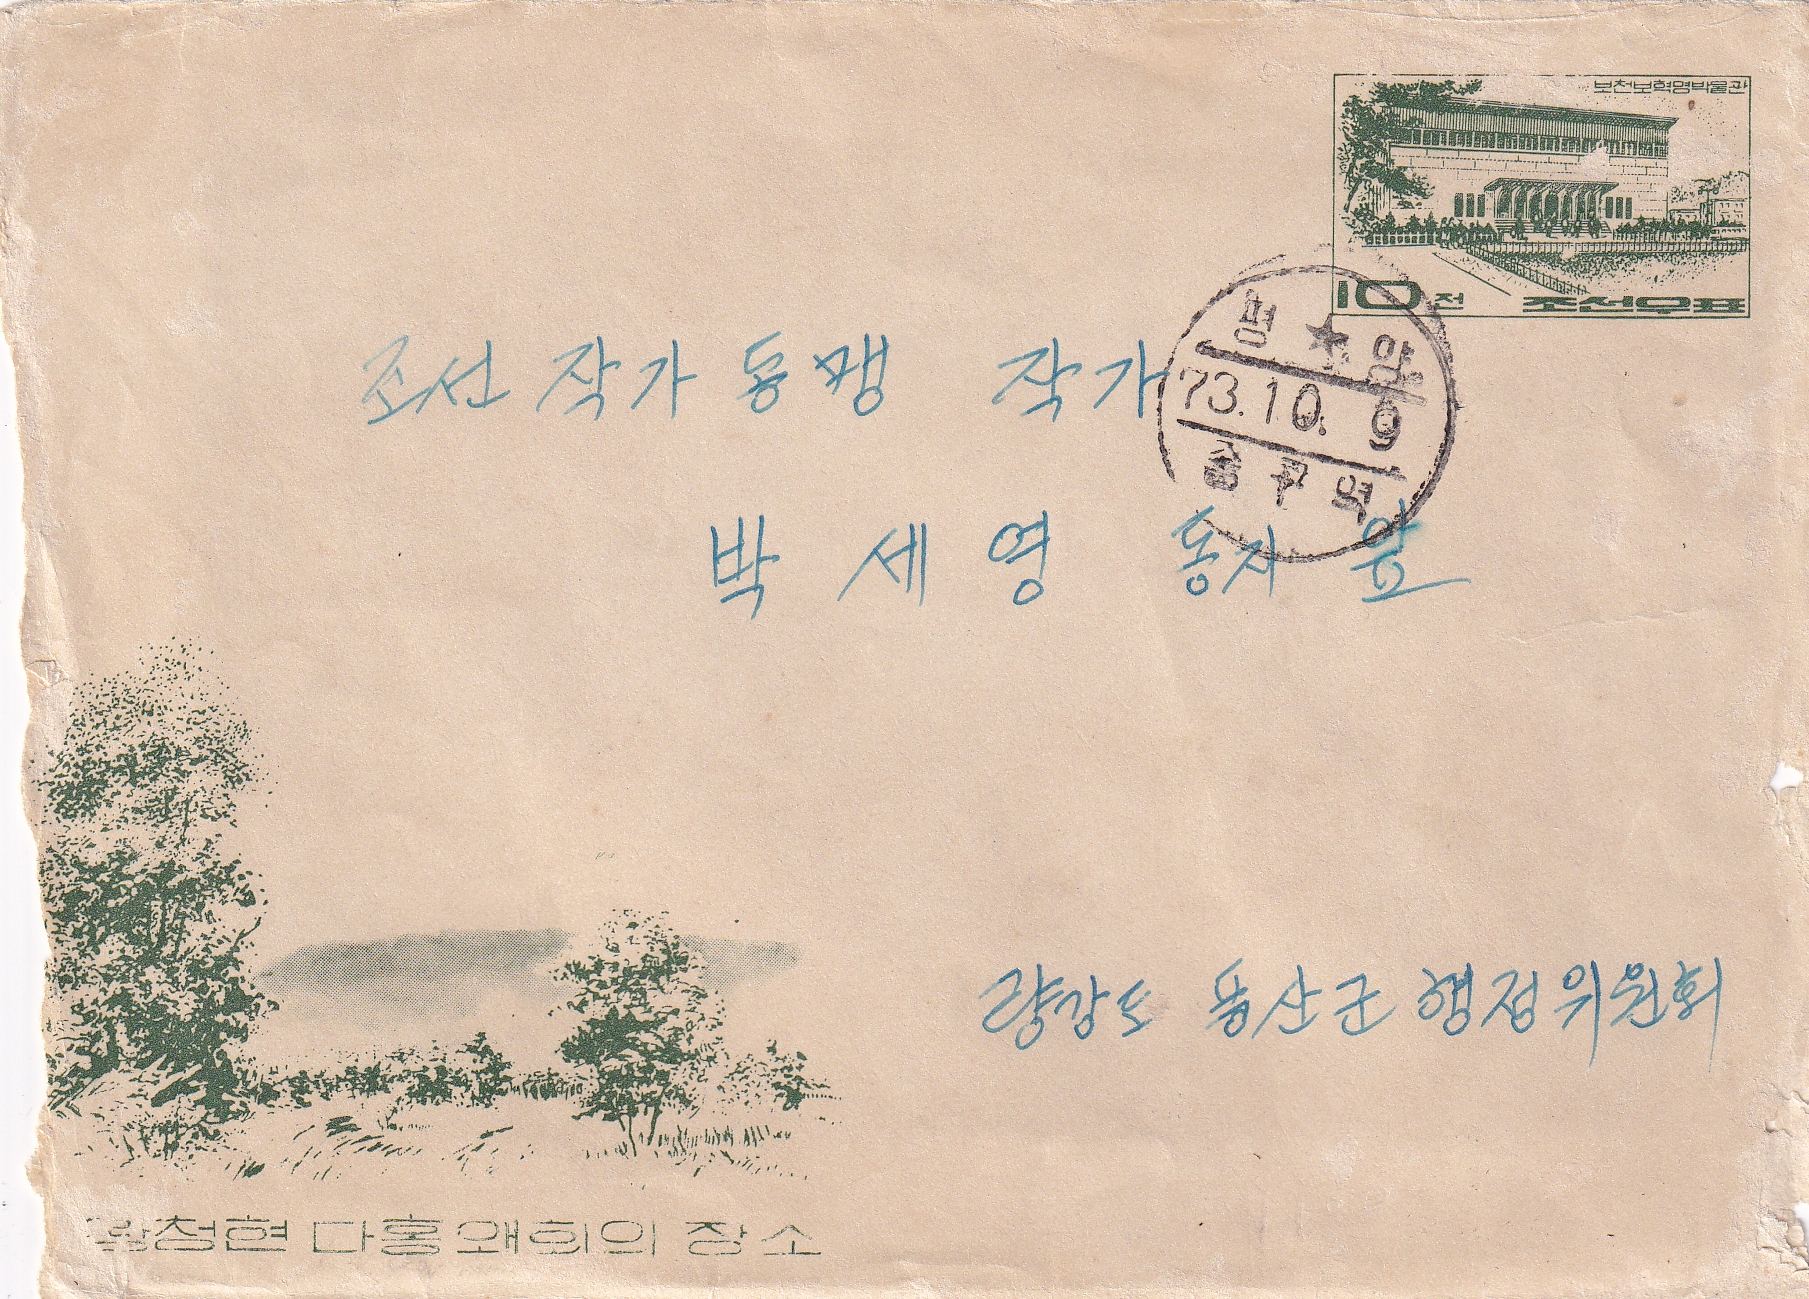 보천보혁명박물관
10전 조선우표
평 양
73.10. 9
중구역
조선 작가 동맹 작가
박 세 영 동지 앞
량강도 풍산군 행정위원회
왕청현 다홍왜회의 장소